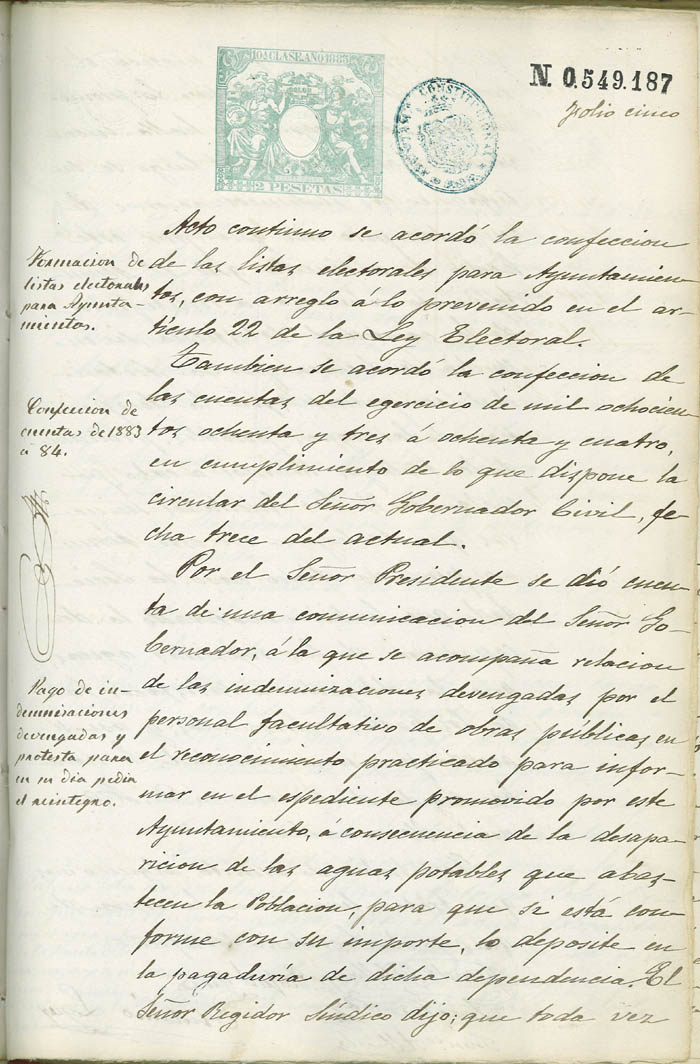 10ª CLASE AÑO 1885
2 PESETAS
CONSTITUCIONAL
N. 0.549.187
Folio cinco
Acto continuo se acordó la confeccion
de las listas electorales para Ayuntamien-
tos, con arreglo á lo prevenido en el ar-
tículo 22 de la Ley Electoral.
Formacion de
listas electorales
para Ayunta-
mientos.
Tambien se acordó la confeccion de
las cuentas del egercicio de mil ochocien-
tos ochenta y tres á ochenta y cuatro,
en cumplimiento de lo que dispone la
circular del Señor Gobernador Civil, fe-
cha trece del actual.
Confeccion de
cuentas de 1883
á 84.
Por el Señor Presidente se dió cuen-
ta de una comunicacion del Señor Go-
bernador, á la que se acompaña relacion
de las indemnizaciones devengadas por el
personal facultativo de obras públicas en
el reconocimiento practicado para infor-
mar en el espediente promovido por este
Ayuntamiento, á consecuencia de la desapa-
ricion de las aguas potables que abas-
tecen la Poblacion, para que si está con-
forme con su importe, lo deposite en
la pagaduría de dicha dependencia. El
Señor Regidor Síndico dijo; que toda vez
Pago de in-
demnisaciones
devengadas y
protesta para
en su dia pedir
el reintegro.